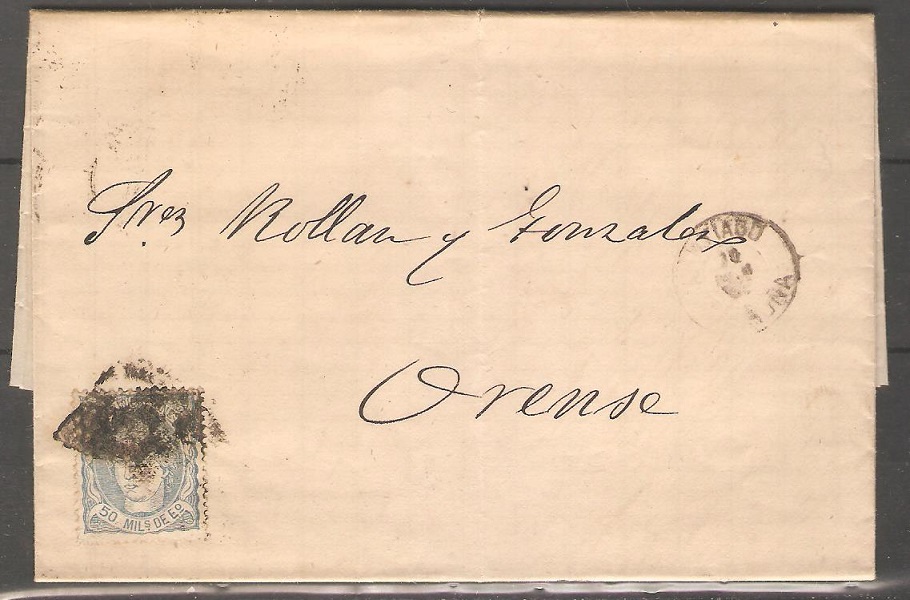 Sres Rollan y Gonzalez
Orense
50 MILS DE Eo